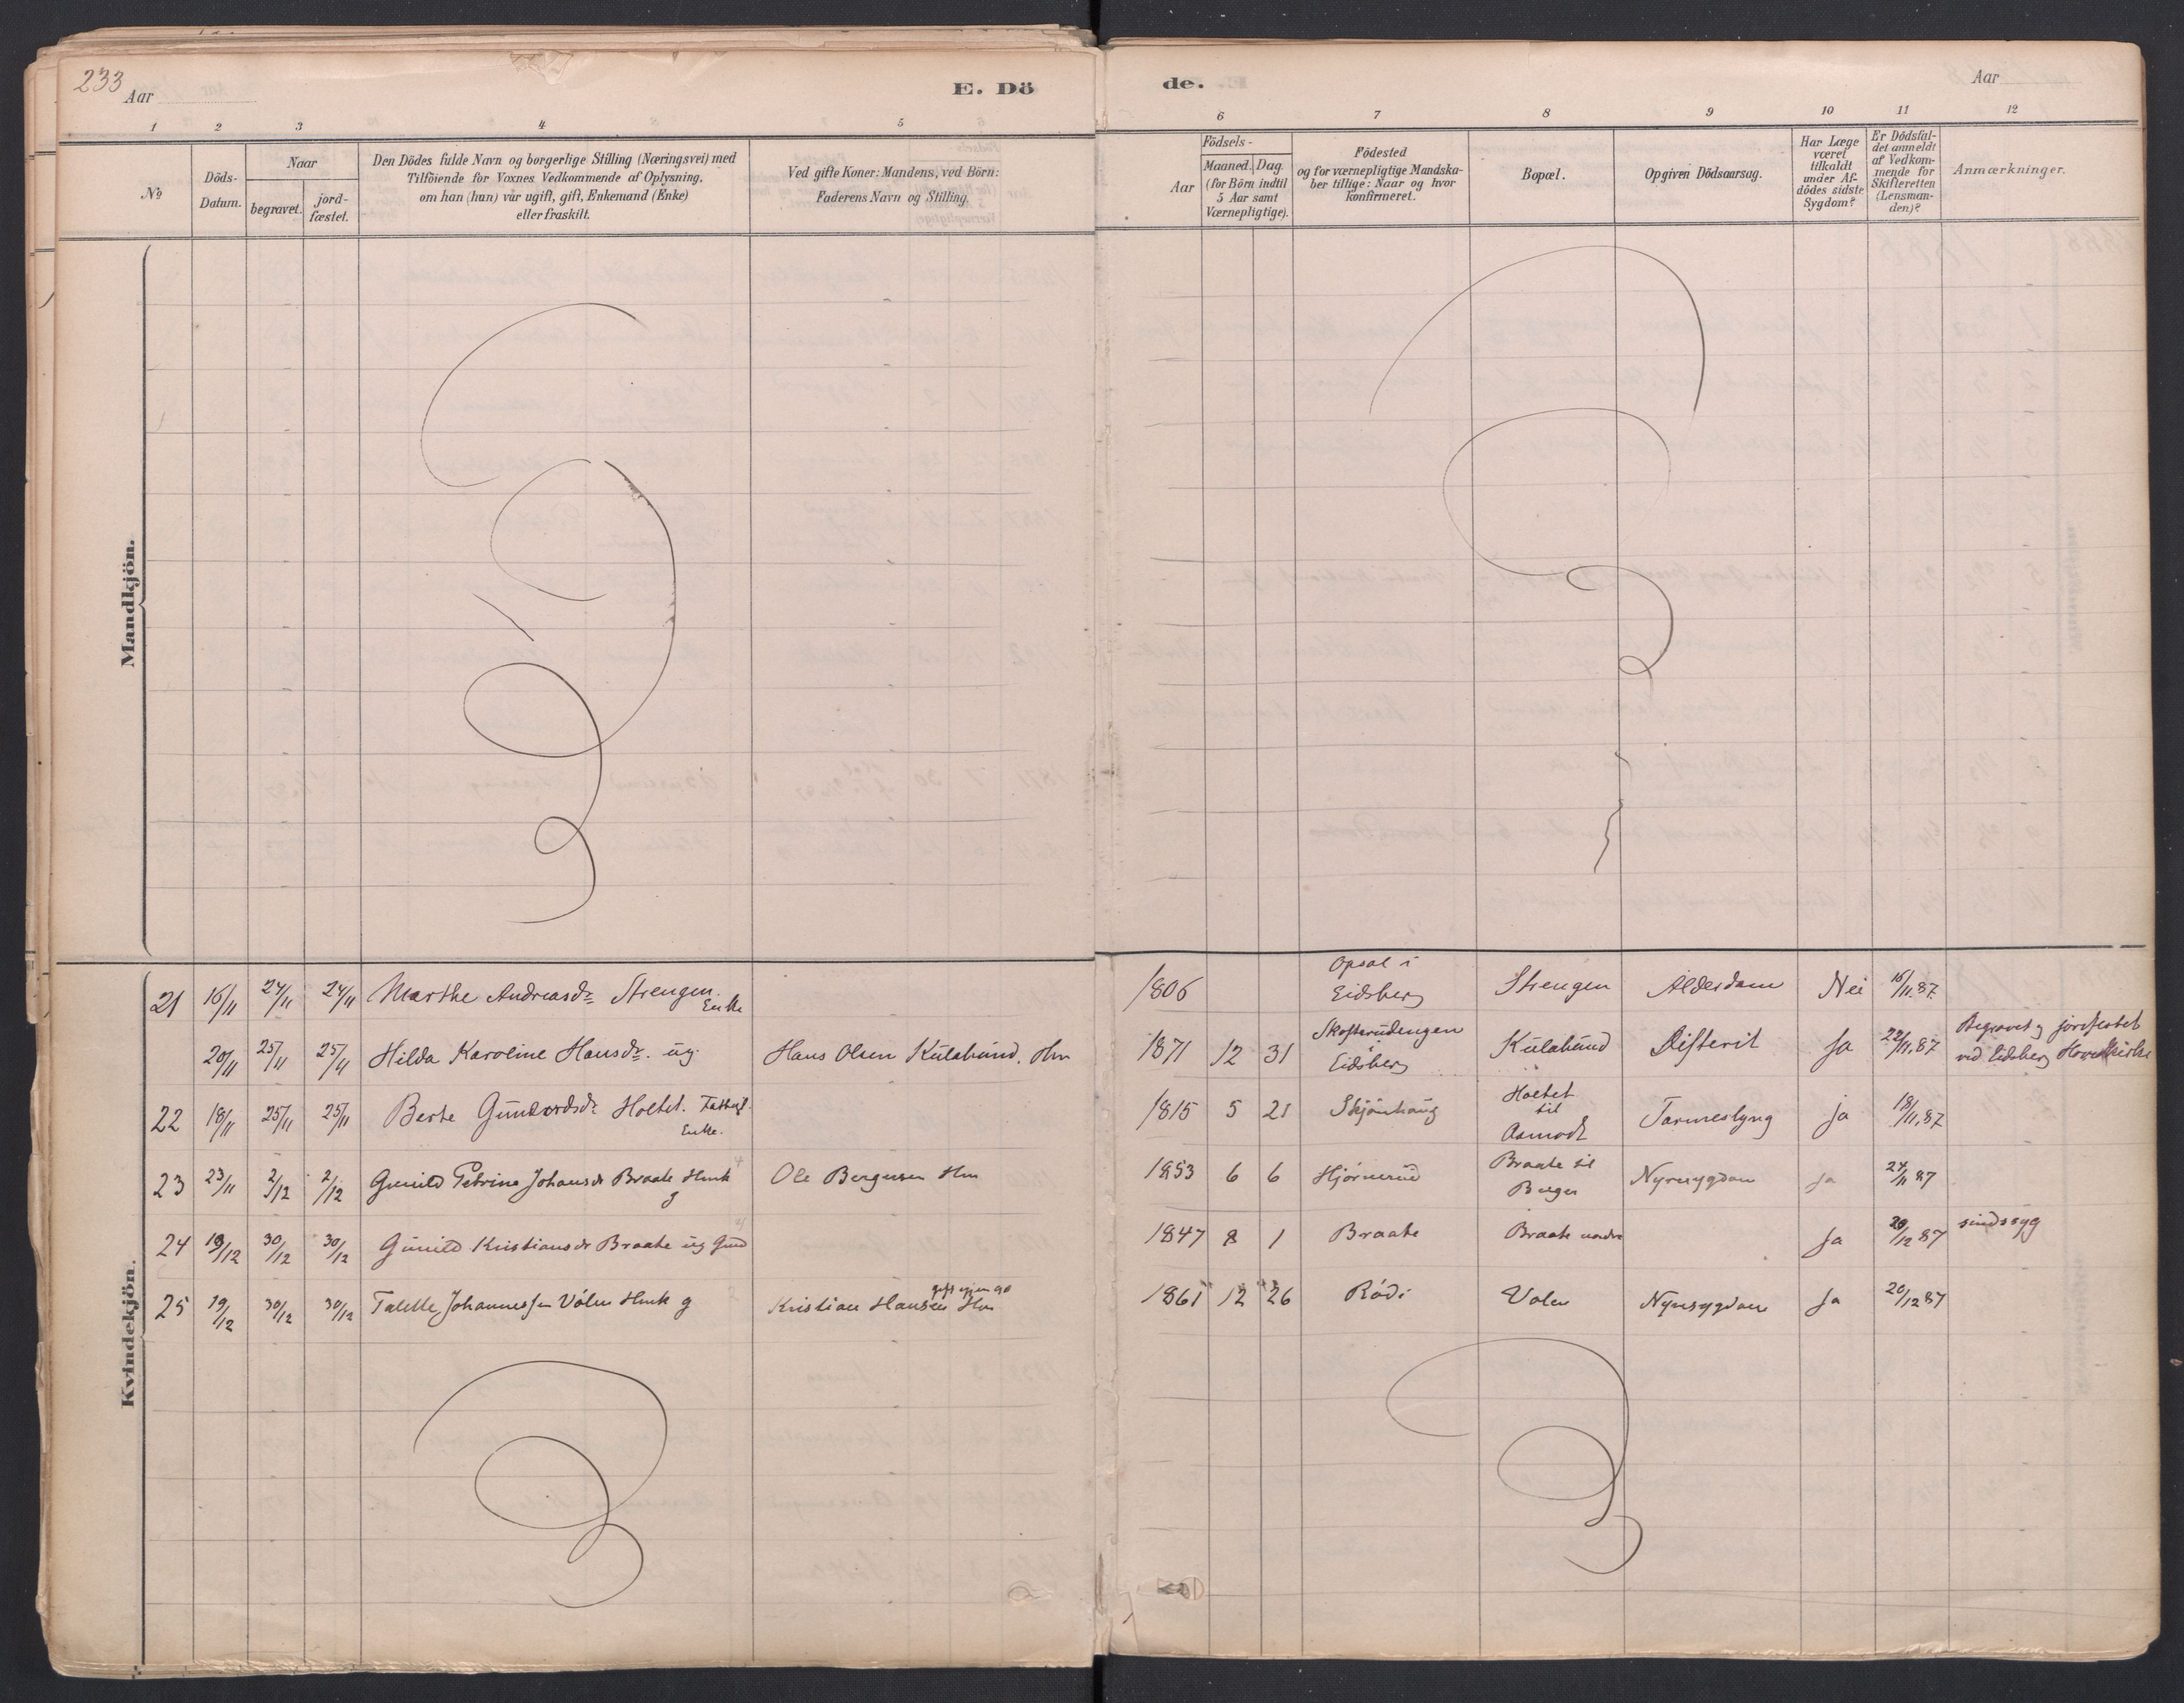 233
Aar
E. Dö
de.
Aar
1 2 3 4 5 6 7 8 9 10 11 12
No
Döds-
Datum.
Naar
begravet.
jord-
fæstet.
Den Dödes fulde Navn og borgerlige Stilling (Næringsvei) med
Tilföiende for Voxnes Vedkommende af Oplysning,
om han (hun) var ugift, gift, Enkemand (Enke)
eller fraskilt.
Ved gifte Koner: Mandens, ved Börn:
Faderens Navn og Stilling.
Födsels-
Aar
Maaned.
Dag.
(for Börn indtil
5 Aar samt
Værnepligtige).
Födested
og for værnepligtige Mandska-
ber tillige: Naar og hvor
konfirmeret.
Bopæl.
Opgiven Dödsaarsag.
Har Læge
været
tilkaldt
under Af-
dödes sidste
Sygdom?
Er Dödsfal-
det anmeldt
af Vedkom-
mende for
Skifteretten
(Lensman-
den)?
Anmærkninger.
Mandkjön.
Kvindekjön.
21 16/11 24/11 24/11 Marthe Andreasdr Strengen. Enke 1806 Opsal i Eidsberg Strengen Alderdom Nei 16/11.87.
20/11 25/11 25/11 Hilda Karoline Hansdr. ug. Hans Olsen Kulabund. Hm 1871 12 31 Skofterudengen i Eidsberg Kulabund Difterit Ja 22/11.87 Begravet og jordfestet ved Eidsberg Hovedkirke
22 18/11 25/11 25/11 Berte Gundersdr Holtet. Enke. 1815 5 21 Skjönhaug Holtet til Aamodt Tarmeslyng ja 18/11.87
23 23/11 2/12 2/12 Gunild Petrine Johansdr Braate Hmk g Ole Bergersen Hm 1853 6 6 Hjörnerud Braate til Berger Nyresygdom Ja 24/11 87
24 19/12 30/12 30/12 Gunild Kristiansdr Braate ug 1847 8 1 Braate Braate nordre Ja 20/12 87 sindssyg
25 19/12 30/12 30/12 Talette Volen Hmk g Kristian Hansen Hm 1861 12 26 Volen Nyresygdom Ja 20/12 87